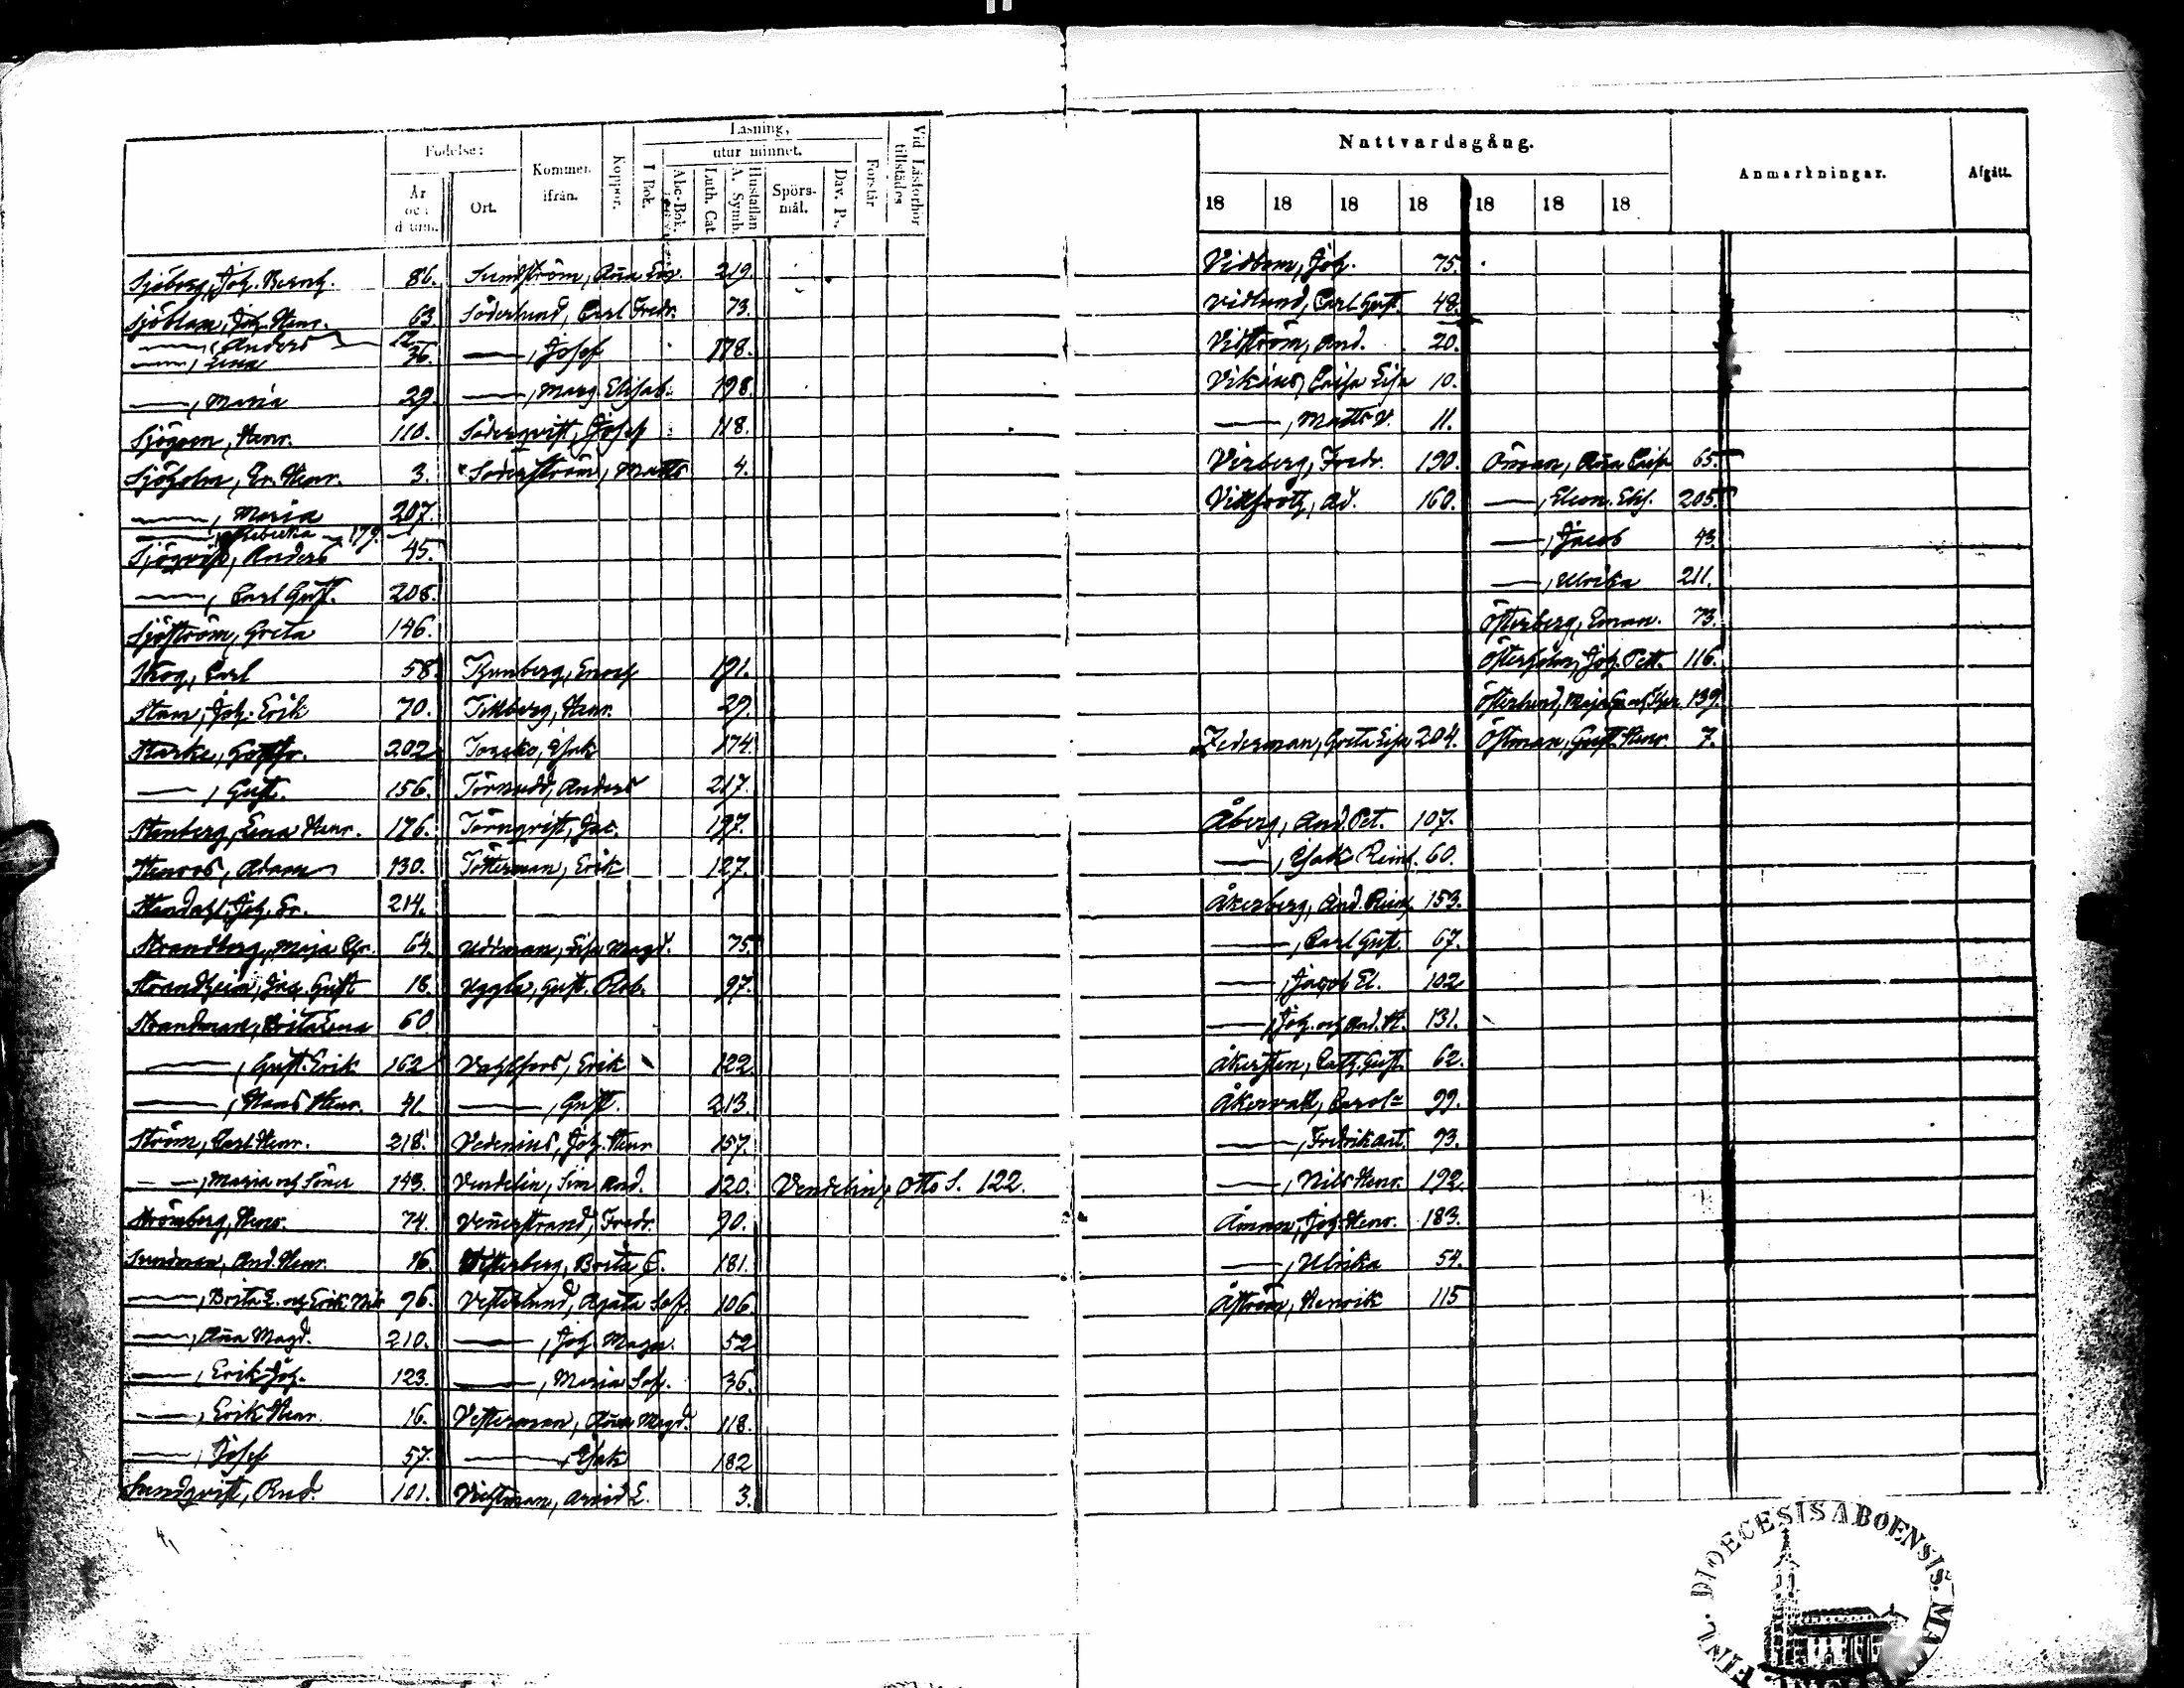 Läsning,
Födelse:
utur minnet.
År och datum.
Ort.
Kommer ifrån.
Koppor.
I Bok.
Abc-Bok.
Luth. Cat.
Hustaflan A. Symb.
Spörsmål.
Dav. P.
Förstår
Vid Läsförhör tillstädes
Sjöberg, Joh. Bernh. 86.
Sjöblom, Joh. Henr. 63.
——, Anders 12.
——, Lena 36.
——, Maria 29.
Sjögren, Henr. 110.
Sjöholm, Er. Henr. 3.
——, Maria 207.
——, Rebecka 179.
Sjöqvist, Anders 45.
——, Carl Gust. 208.
Sjöström, Greta 146.
Skog, Carl 58.
Stam, Joh. Erik 70.
Starke, Gottfr. 202
——, Gust. 156.
Stenberg, Lena Henr. 176.
Stenroos, Adam 130.
Stendahl, Joh. Er. 214.
Strandberg, Maja Chr. 64.
Strandheim, Jac. Gust 18.
Strandman, Brita Lena 60
——, Gust. Erik 162
——, Hans Henr. 41.
Ström, Carl Henr. 218.
——, Maria och Söner 143.
Strömberg, Henr. 74.
Sundman, And. Henr. 16.
——, Brita E. och Erik Nils 96.
——, Anna Magd. 210.
——, Erik Joh. 123.
——, Erik Henr. 16.
——, Josef 57.
Sundqvist, And. 101.
Sundström, Anna 219
Söderlund, Carl Fredr. 73.
——, Josef 178.
——, Marg. Elisab. 198.
Söderqvist, Josef 118.
Söderström, Matts 4.
Thunberg, Enoch 191.
Tillberg, Henr. 29.
Torsko, Isak 174.
Törnudd, Anders 217.
Törnqvist, Jac. 197.
Tötterman, Erik 127.
Uddman, Lisa Magd. 75.
Uggla, Gust. Rob. 97.
Vahlfors, Erik 122
——, Gust. 213.
Vedenius, Joh. Henr 157.
Vendelin, Sim And. 120.
Vendelin, Otto S. 122.
Vennerstrand, Fredr. 90.
Vesterberg, Brita C. 181.
Vesterlund, Agata Sof. 106.
——, Joh. Magn. 52
——, Maria Sof. 36.
Vesterman, Anna Magd. 118.
——, Isak 182
Vichtman, Arvid E. 3.
Nattvardsgång.
Anmärkningar.
Afgått.
18 18 18 18 18 18 18
Vidbom, Joh. 75.
Vidlund, Carl Gust. 48.
Vidström, And. 20.
Vikéus, Caisa Lisa 10.
——, Matts V. 11.
Virberg, Fredr. 190.
Vittfooth, Ad. 160.
Zederman, Greta Lisa 204.
Åberg, And. Pet. 107.
——, Isak Reinh. 60.
Åkerberg, And. Reinh. 153.
——, Carl Gust. 67.
——, Jacob El. 102
——, Joh. och And. H. 131.
Åkersten, Cath. Gust. 62.
Åkervall, Carola 99.
——, Fredrik Ant. 93.
——, Nils Henr. 192.
Åman, Joh. Henr. 183.
——, Ulrika 54.
Åström, Henrik 115
Öman, Anna Caisa 65.
——, Eleon. Elis. 205.
——, Jacob 43.
——, Ulrika 211.
Österberg, Eman. 73.
Österholm, Joh. Pett. 116.
Österlund, Maja 139.
Östman, Gust. Henr. 7.
FINL. DIOECESIS ABOENSIS.